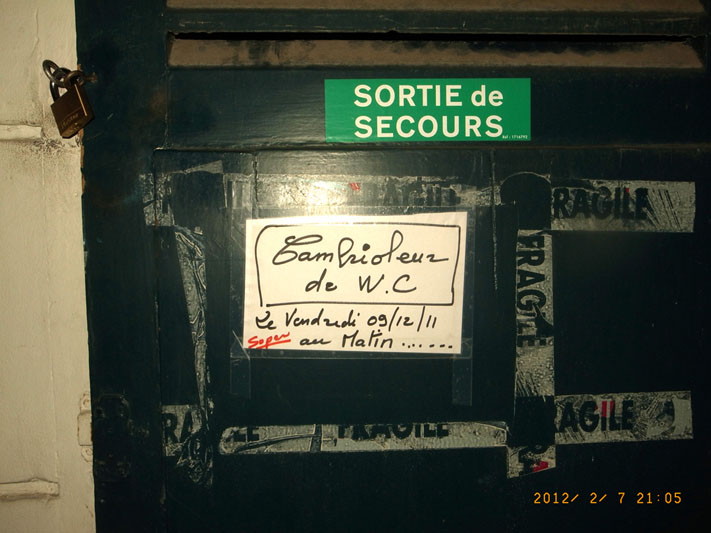 SORTIE de
SECOURS
FRAGILE
RAGILE
Cambrioleur
de W.C
Le Vendredi 09/12/11
Super au Matin .......
FRAGILE
FRAGILE
AGILE
2012/ 2/ 7 21:05